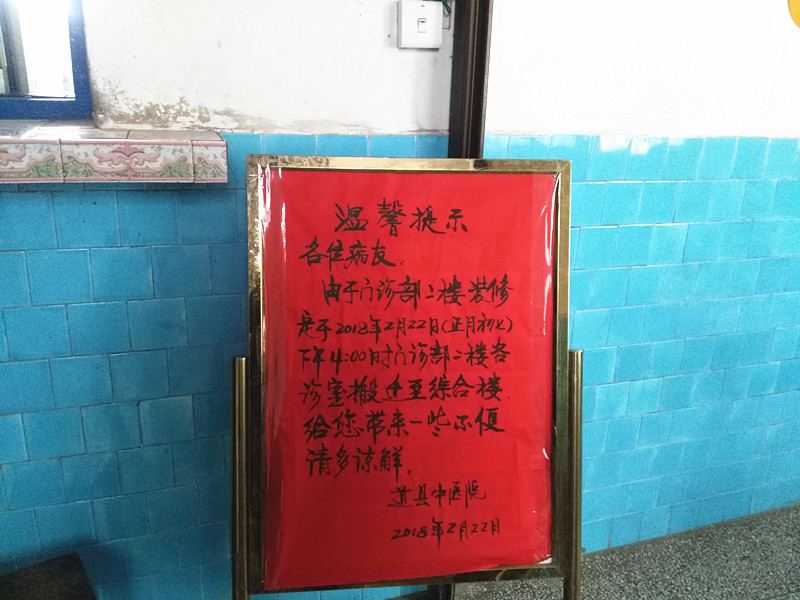 温馨提示
各位病友：
由于门诊部二楼装修
定于2018年2月22日(正月初七)
下午4:00时门诊部二楼各
诊室搬迁至综合楼
给您带来一些不便
请多谅解。
道县中医院
2018年2月22日